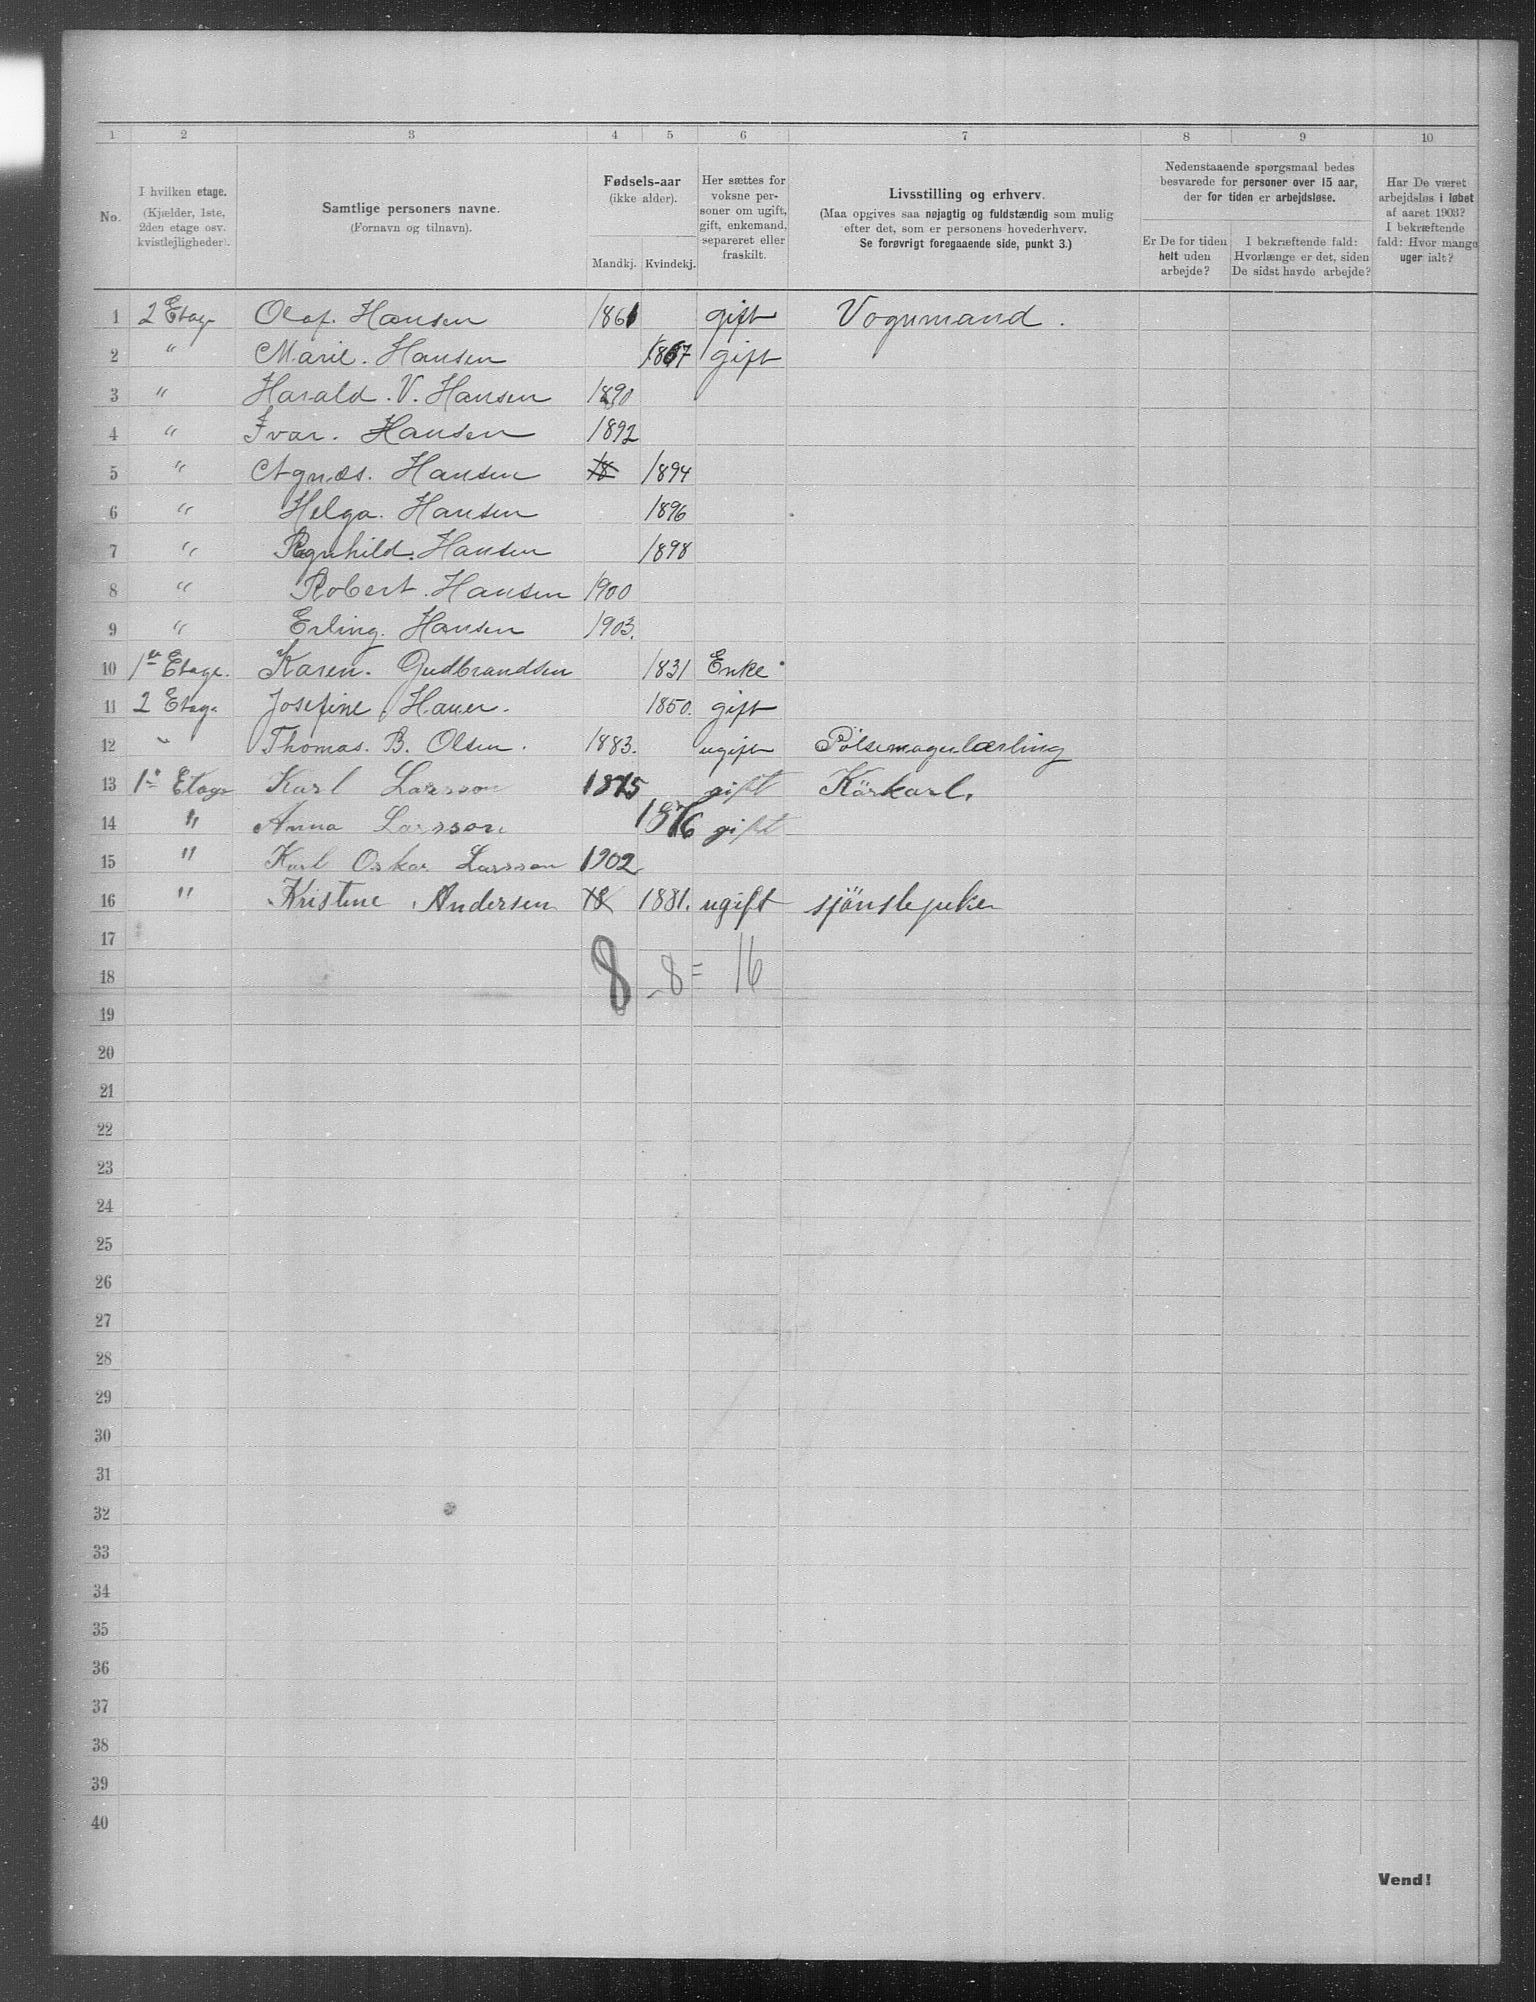 1 2 3 4 5 6 7 8 9 10
No.
I hvilken etage.
(Kjælder, 1ste,
2den etage osv.
kvistlejligheder).
Samtlige personers navne.
(Fornavn og tilnavn).
Fødsels-aar
(ikke alder).
Mandkj. Kvindekj.
Her sættes for
voksne per-
soner om ugift,
gift, enkemand,
separeret eller
fraskilt.
Livsstilling og erhverv.
(Maa opgives saa nøjagtig og fuldstændig som mulig
efter det, som er personens hovederhverv.
Se forøvrigt foregaaende side, punkt 3.)
Nedenstaaende spørgsmaal bedes
besvarede for personer over 15 aar,
der for tiden er arbejdsløse.
Er De for tiden
helt uden
arbejde?
I bekræftende fald:
Hvorlænge er det, siden
De sidst havde arbejde?
Har De været
arbejdsløs i løbet
af aaret 1903?
I bekræftende
fald: Hvor mange
uger ialt?
1 2 Etage Olaf. Hansen 1861 gift Vognmand.
2 " Marie. Hansen 1867 gift
3 " Harald. V. Hansen 1890
4 " Ivar. Hansen 1892
5 " Agnes. Hansen 18 1894
6 " Helga. Hansen 1896
7 " Ragnhild. Hansen 1898
8 " Robert. Hansen 1900
9 " Erling. Hansen 1903.
10 1ste Etage. Karen. Gudbrandsen 1831 Enke
11 2 Etage Josefine Hauer. 1850. gift
12 " Thomas. B. Olsen. 1883. ugift Pölsemagerlærling
13 1ste Etage Karl Larsson 1875 gift Körkarl.
14 " Anna Larsson 1876 gift
15 " Karl Oskar Larsson 1902
16 " Kristine Andersen 18 1881. ugift
17
18 8 - 8 = 16
19
20
21
22
23
24
25
26
27
28
29
30
31
32
33
34
35
36
37
38
39
40
Vend!